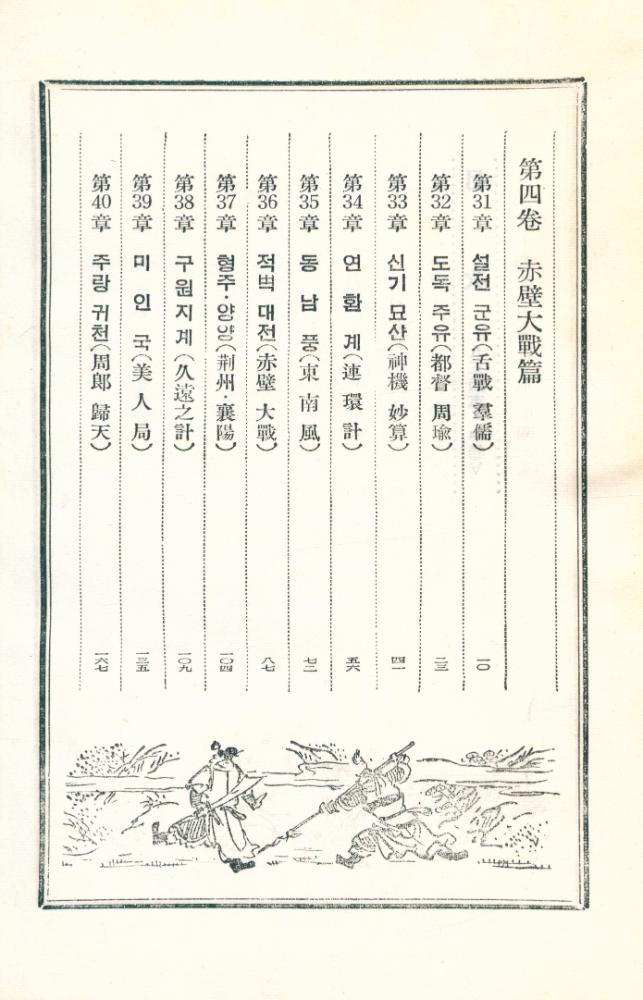 第四卷 赤壁大戰篇
第31章 설전 군유(舌戰 羣儒) 一〇
第32章 도독 주유(都督 周瑜) 二三
第33章 신기 묘산(神機 妙算) 四一
第34章 연환계(連環計) 五六
第35章 동남풍(東南風) 七二
第36章 적벽 대전(赤壁 大戰) 八七
第37章 형주·양양(荊州·襄陽) 一〇四
第38章 구원지계(久遠之計) 一〇九
第39章 미인국(美人局) 一三五
第40章 주랑 귀천(周郞 歸天) 一六七